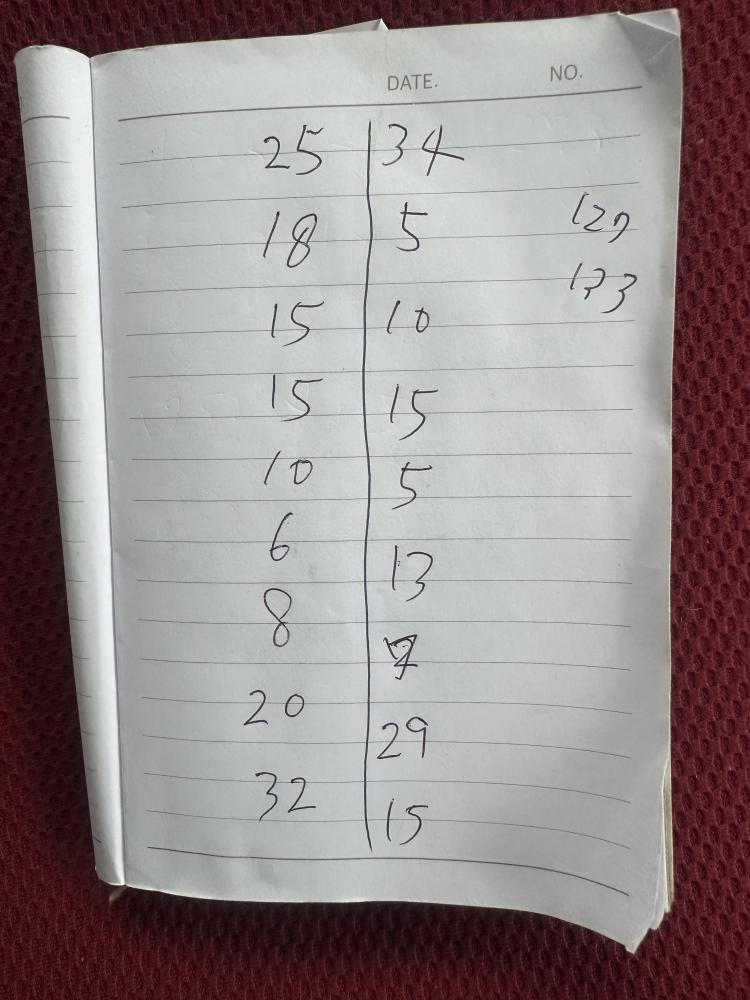 DATE. NO.
25 34
18 5 127
15 10 133
15 15
10 5
6 13
8 7
20 29
32 15